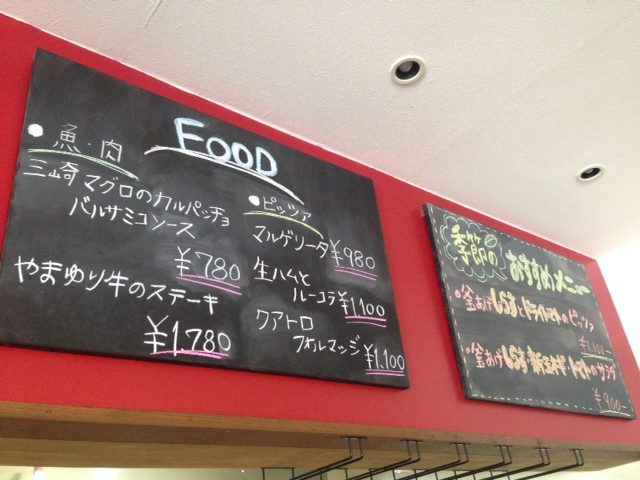 FOOD
●魚・肉
三崎マグロのカルパッチョ
バルサミコソース
¥780
やまゆり牛のステーキ
¥1,780
●ピッツァ
マルゲリータ ¥980
生ハムと
ルーコラ ¥1,100
クアトロ
フォルマッジ ¥1,100
季節の
おすすめメニュー
●釜あげしらすとドライトマトのピッツァ
¥1,100-
●釜あげしらす・新玉ネギ・トマトのサラダ
¥900-